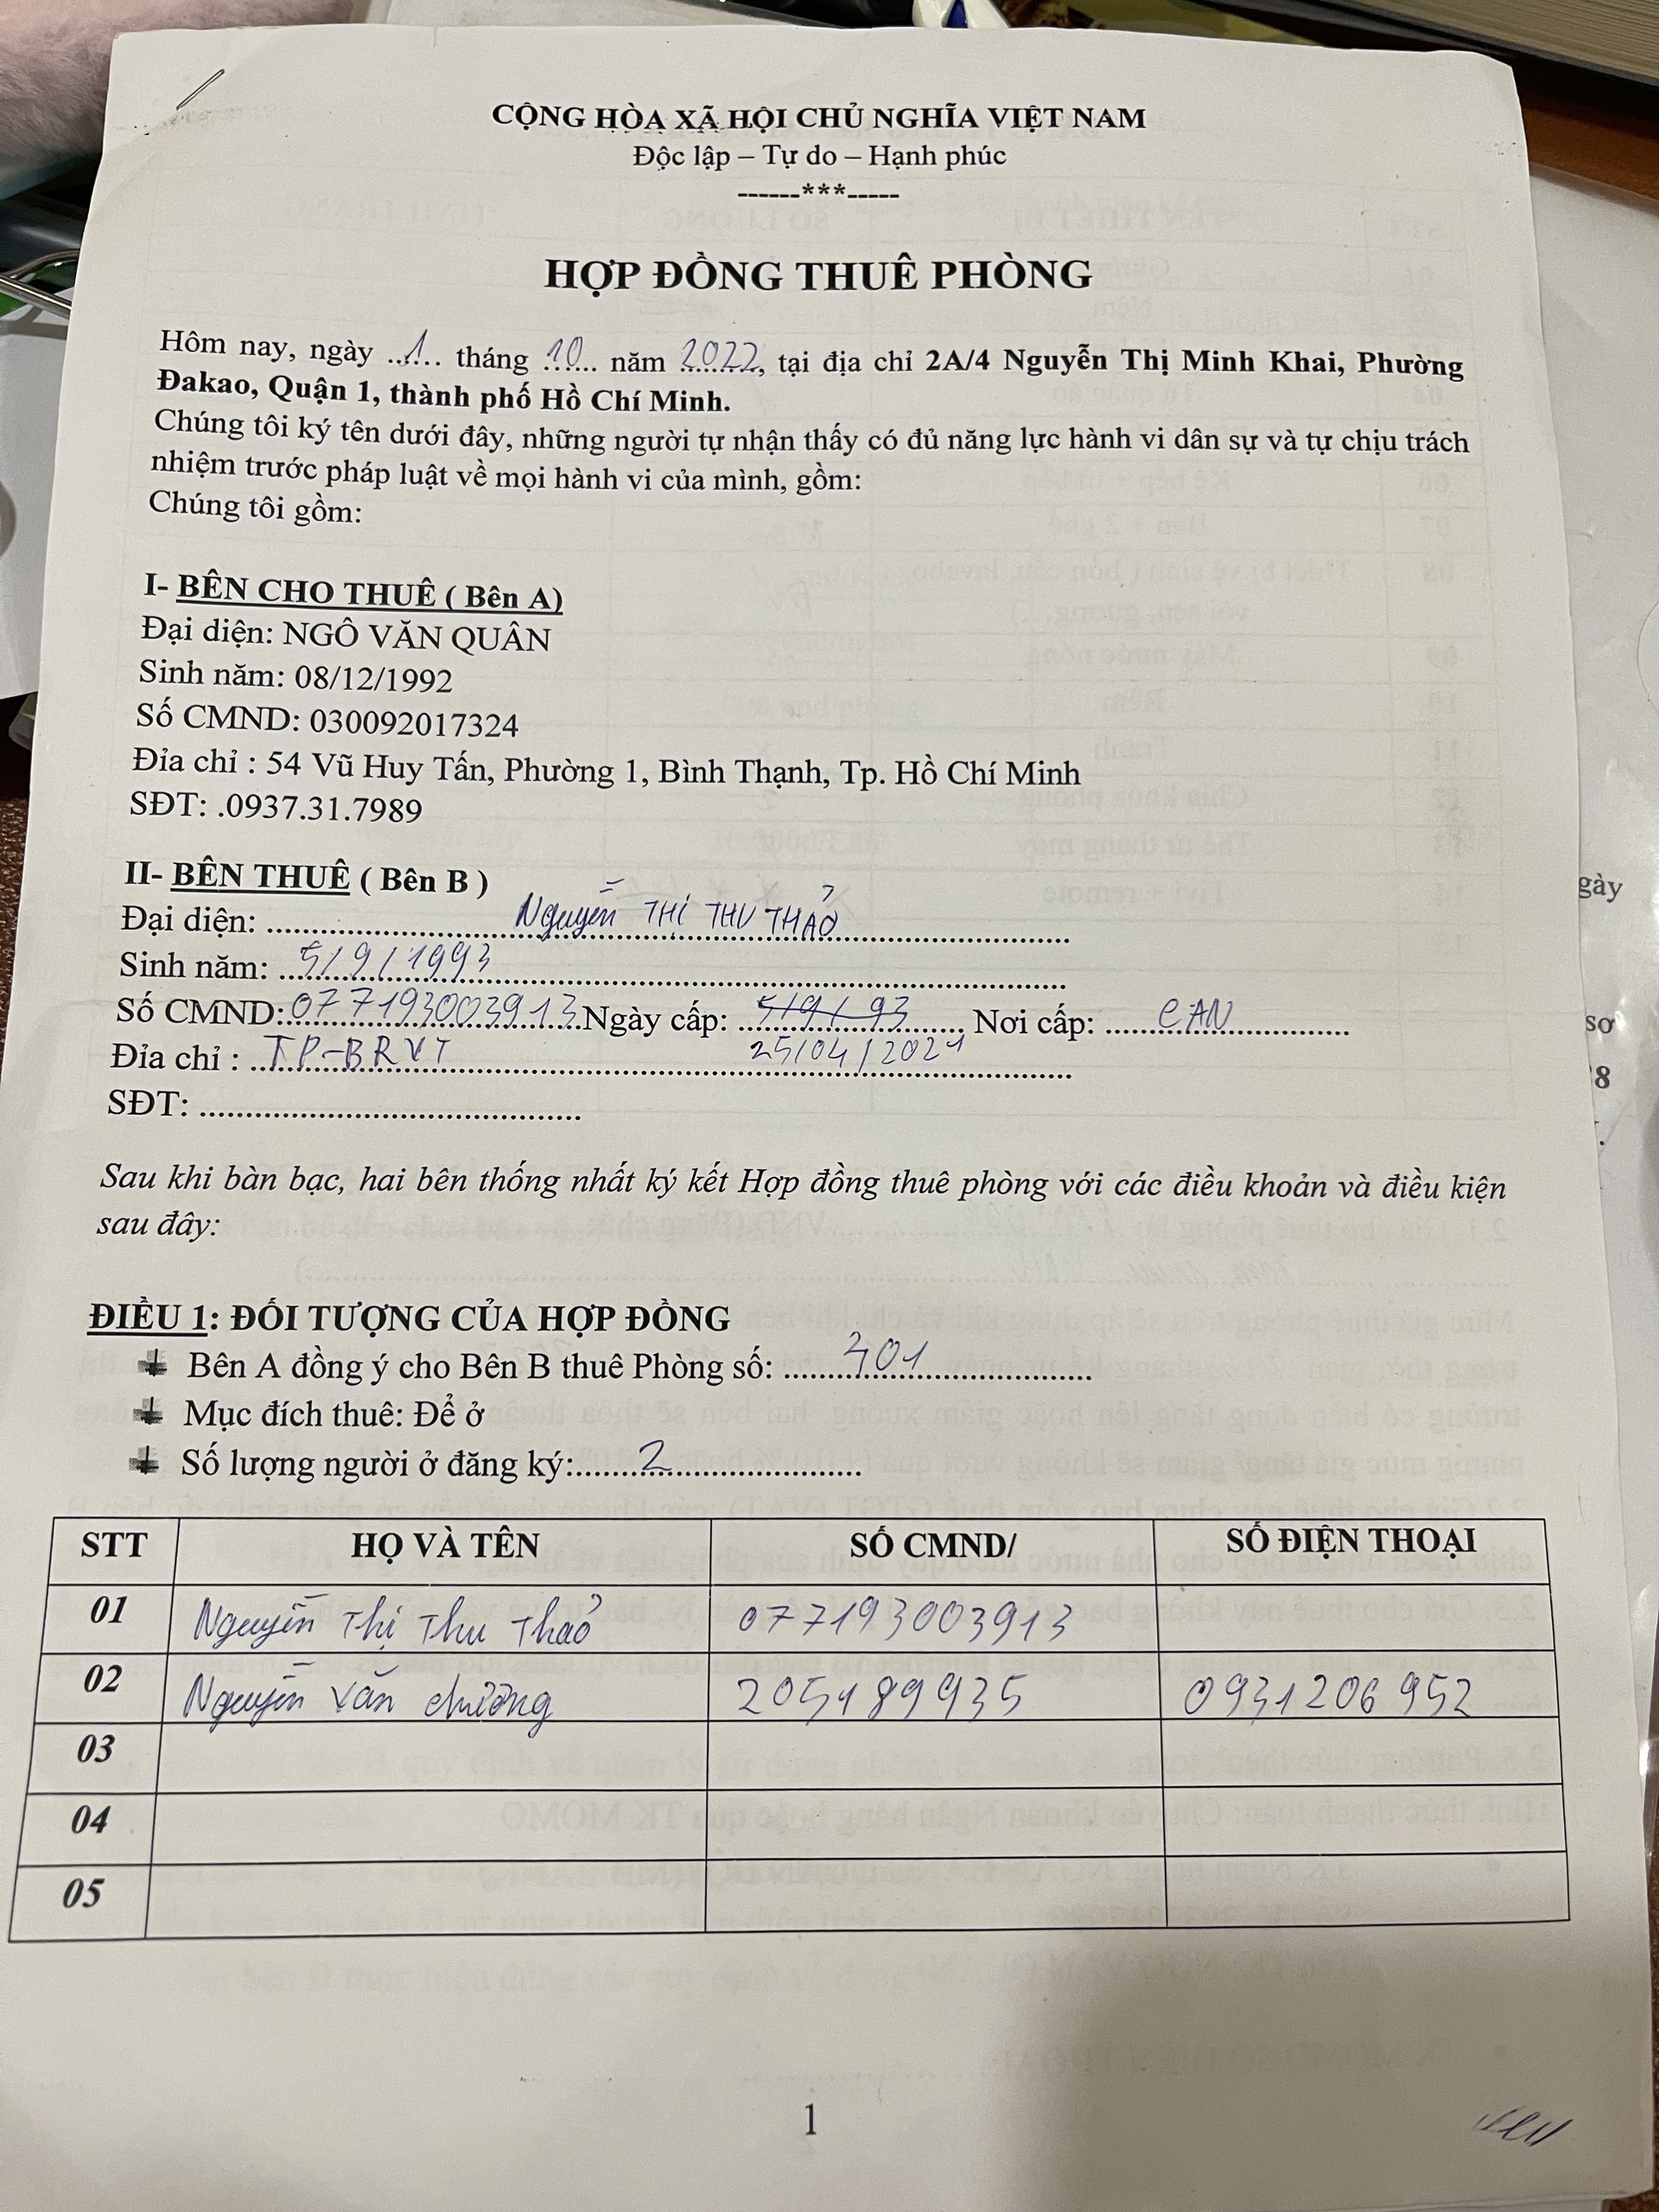 CỘNG HÒA XÃ HỘI CHỦ NGHĨA VIỆT NAM
Độc lập – Tự do – Hạnh phúc
------***-----
HỢP ĐỒNG THUÊ PHÒNG
Hôm nay, ngày 1 tháng 10 năm 2022, tại địa chỉ 2A/4 Nguyễn Thị Minh Khai, Phường
Đakao, Quận 1, thành phố Hồ Chí Minh.
Chúng tôi ký tên dưới đây, những người tự nhận thấy có đủ năng lực hành vi dân sự và tự chịu trách
nhiệm trước pháp luật về mọi hành vi của mình, gồm:
Chúng tôi gồm:
I- BÊN CHO THUÊ ( Bên A)
Đại diện: NGÔ VĂN QUÂN
Sinh năm: 08/12/1992
Số CMND: 030092017324
Đia chỉ : 54 Vũ Huy Tấn, Phường 1, Bình Thạnh, Tp. Hồ Chí Minh
SĐT: .0937.31.7989
II- BÊN THUÊ ( Bên B )
Đại diện: Nguyễn THị THU THẢO
Sinh năm: 5/9/1993
Số CMND: 077193003913 Ngày cấp: 5/9/93 Nơi cấp: CAN
Đia chỉ : TP-BRVT 25/04/2021
SĐT:
Sau khi bàn bạc, hai bên thống nhất ký kết Hợp đồng thuê phòng với các điều khoản và điều kiện
sau đây:
ĐIỀU 1: ĐỐI TƯỢNG CỦA HỢP ĐỒNG
Bên A đồng ý cho Bên B thuê Phòng số: 401
Mục đích thuê: Để ở
Số lượng người ở đăng ký: 2
STT HỌ VÀ TÊN SỐ CMND/ SỐ ĐIỆN THOẠI
01 Nguyễn Thị Thu Thảo 077193003913
02 Nguyễn Văn chường 205189935 0931206952
03
04
05
1
gày
sơ
8